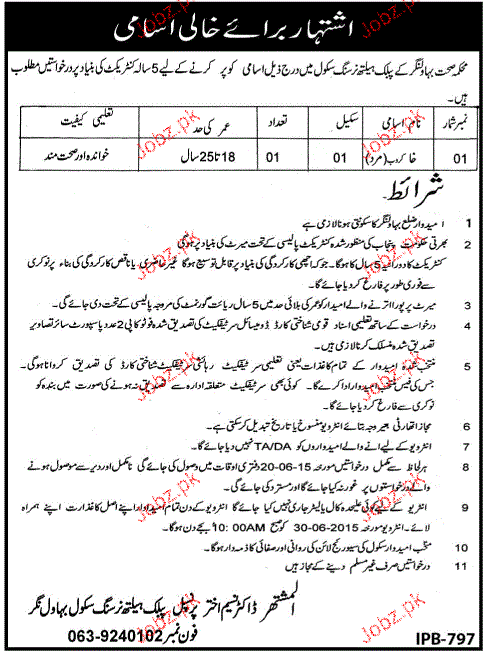 اشتہار برائے خالی اسامی
محکمہ صحت بہاولنگر کے پبلک ہیلتھ نرسنگ سکول میں درج ذیل اسامی کو پر کرنے کے لیے 5 سالہ کنٹریکٹ کی بنیاد پر درخواستیں مطلوب
ہیں۔
نمبر شمار نام اسامی سکیل تعداد عمر کی حد تعلیمی کیفیت
01 خاکروب (مرد) 01 01 18 تا 25 سال خواندہ اور صحت مند
شرائط
1 امیدوار ضلع بہاولنگر کا سکونتی ہونا لازمی ہے
2 بھرتی حکومت پنجاب کی منظور شدہ کنٹریکٹ پالیسی کے تحت میرٹ کی بنیاد پر ہوگی
کنٹریکٹ کا دورانیہ 5 سال کا ہوگا۔ جو کہ اچھی کارکردگی کی بنیاد پر قابل توسیع ہوگا غیر حاضری یا ناقص کارکردگی کی بناء پر نوکری
سے فوری طور پر فارغ کر دیا جائے گا۔
3 میرٹ پر پورا اترنے والے امیدوار کو عمر کی بالائی حد میں 5 سال رعایت گورنمنٹ کی مروجہ پالیسی کے تحت دی جائے گی۔
4 درخواست کے ساتھ تعلیمی اسناد قومی شناختی کارڈ ڈومیسائل سرٹیفکیٹ کی تصدیق شدہ فوٹو کاپی 2 عدد پاسپورٹ سائز تصاویر
تصدیق شدہ منسلک کرنا لازمی ہیں۔
5 منتخب شدہ امیدوار کے تمام کاغذات یعنی تعلیمی سرٹیفکیٹ رہائشی سرٹیفکیٹ شناختی کارڈ کی تصدیق کروانا ہوگی۔
جس کی فیس منتخب امیدوار ادا کرے گا۔ کوئی بھی سرٹیفکیٹ متعلقہ ادارہ سے تصدیق نہ ہونے کی صورت میں بندہ کو
نوکری سے فارغ کر دیا جائے گا۔
6 مجاز اتھارٹی بغیر وجہ بتائے انٹرویو منسوخ یا تاریخ تبدیل کر سکتی ہے۔
7 انٹرویو کے لیے آنے والے امیدواروں کو TA/DA نہیں دیا جائے گا۔
8 ہر لحاظ سے مکمل درخواستیں مورخہ 20-06-15 دفتری اوقات میں وصول کی جائے گی نامکمل اور دیر سے موصول ہونے
والے درخواستوں پر غور نہ کیا جائے گا اور مسترد کی جائے گی۔
9 انٹرویو کے لیے کوئی علیحدہ کال لیٹر جاری نہیں کیا جائے گا انٹرویو کے دن تمام امیدوار اپنے اصل کاغذات اپنے ہمراہ
لائے۔ انٹرویو مورخہ 30-06-2015 کو صبح 10:00AM بجے دن ہوگا۔
10 منتخب امیدوار سکول کی سیوریج لائن کی روانی اور صفائی کا ذمہ دار ہوگا۔
11 درخواستیں صرف غیر مسلم دینے کے مجاز ہیں
المشتہر ڈاکٹر نسیم اختر پرنسپل پبلک ہیلتھ نرسنگ سکول بہاولنگر
فون نمبر 063-9240102
IPB-797
Jobz.pk